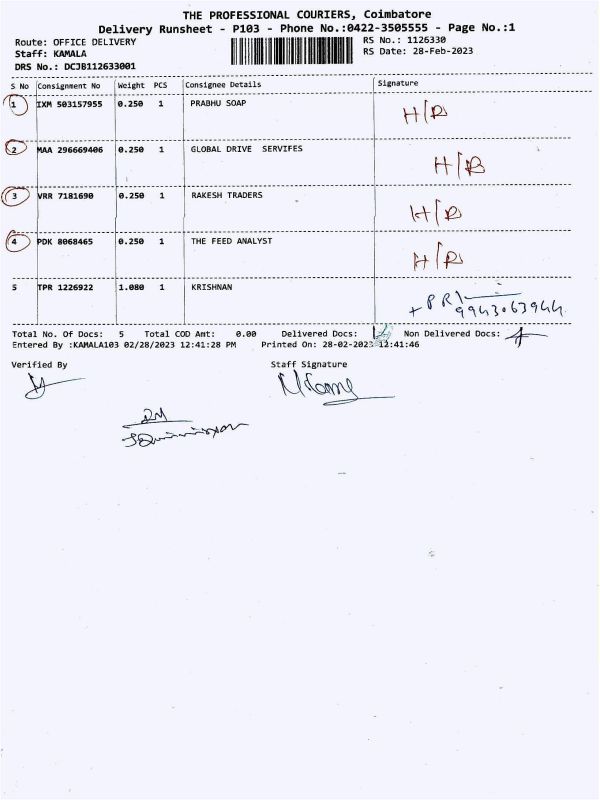 THE PROFESSIONAL COURIERS, Coimbatore
Delivery Runsheet - P103 - Phone No.:0422-3505555 - Page No.:1
Route: OFFICE DELIVERY RS No.: 1126330
Staff: KAMALA RS Date: 28-Feb-2023
DRS No.: DCJB112633001
S No Consignment No Weight PCS Consignee Details Signature
1 IXM 503157955 0.250 1 PRABHU SOAP H/R
2 MAA 296669406 0.250 1 GLOBAL DRIVE SERVIFES H/R
3 VRR 7181690 0.250 1 RAKESH TRADERS H/R
4 PDK 8068465 0.250 1 THE FEED ANALYST H/R
5 TPR 1226922 1.080 1 KRISHNAN
9943063944
Total No. Of Docs: 5 Total COD Amt: 0.00 Delivered Docs: Non Delivered Docs:
Entered By :KAMALA103 02/28/2023 12:41:28 PM Printed On: 28-02-2023 12:41:46
Verified By Staff Signature